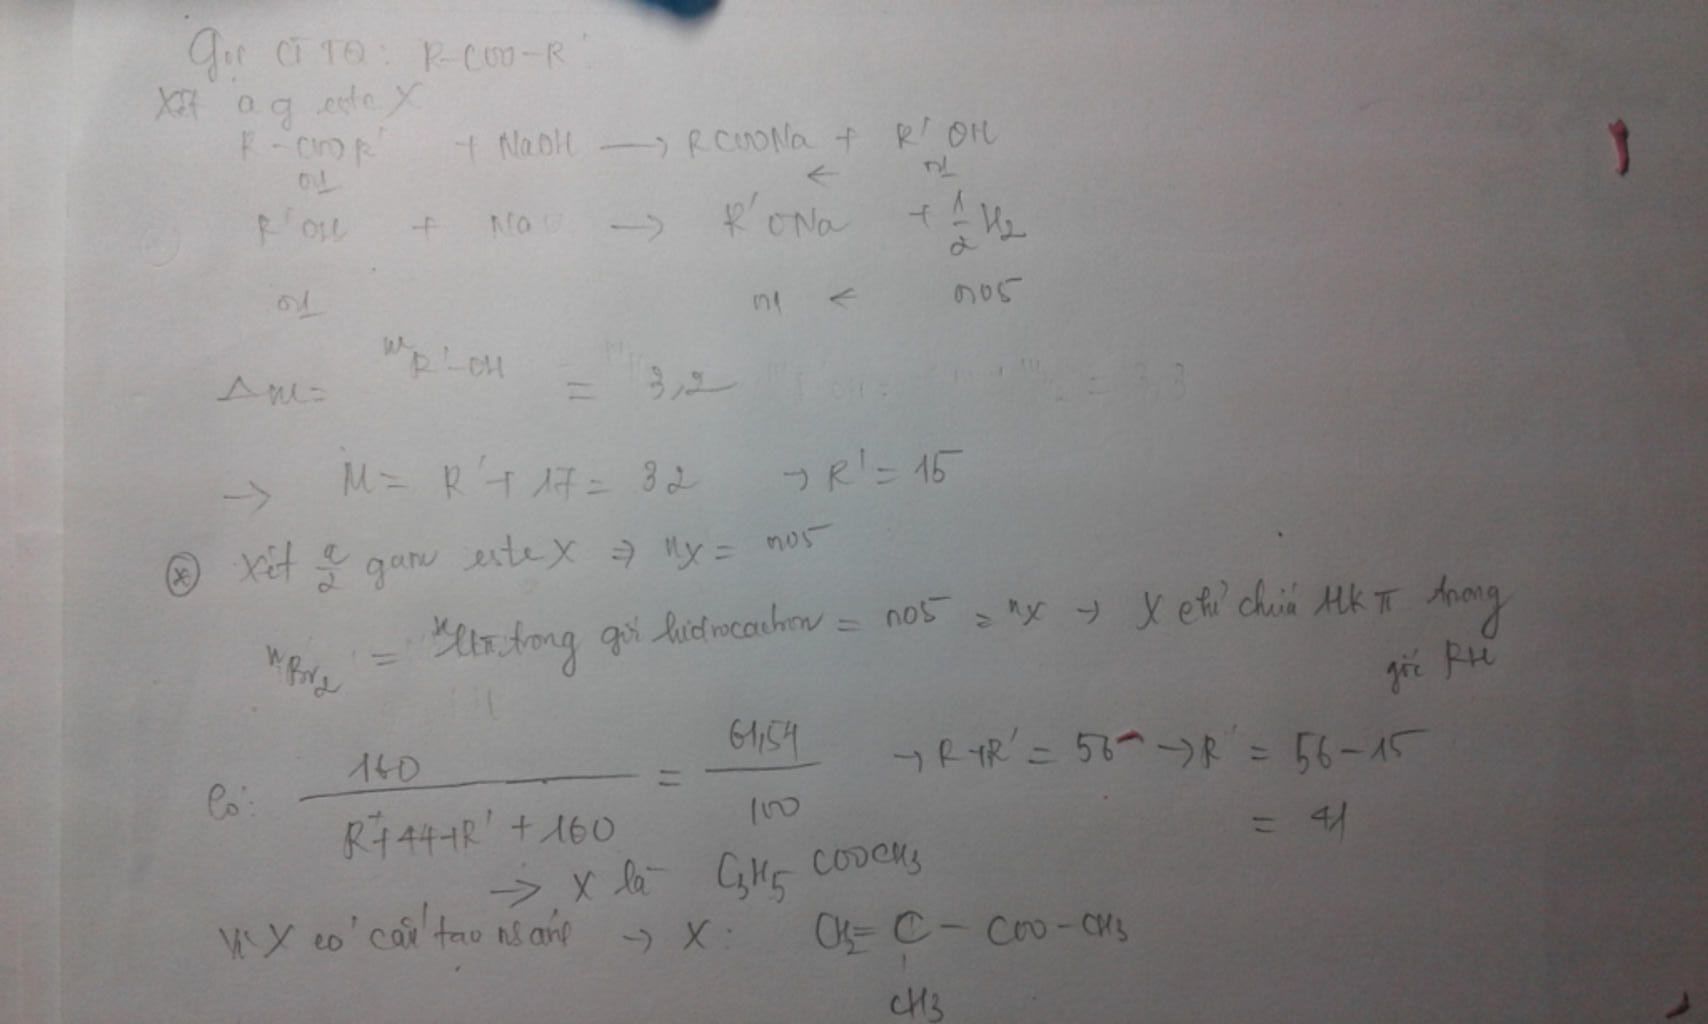 Gọi CTTQ: R-COO-R'
Xét a g este X
R-COOR' + NaOH → RCOONa + R'OH
0,1 ← 0,1
R'OH + Na → R'ONa + 1/2 H2
0,1 0,1 ← 0,05
Δm = mR'-OH = 3,2
→ M = R' + 17 = 32 → R' = 15
⊛ Xét a/2 gam este X ⇒ nX = 0,05
nBr2 = nlkπ trong gốc hidrocacbon = 0,05 = nX → X chỉ chứa 1lk π trong
gốc RH
Có: 160/(R+44+R'+160) = 61,54/100 → R+R' = 56 → R = 56-15
= 41
→ X là C3H5COOCH3
Vì X có cấu tạo → X: CH2=C-COO-CH3
CH3